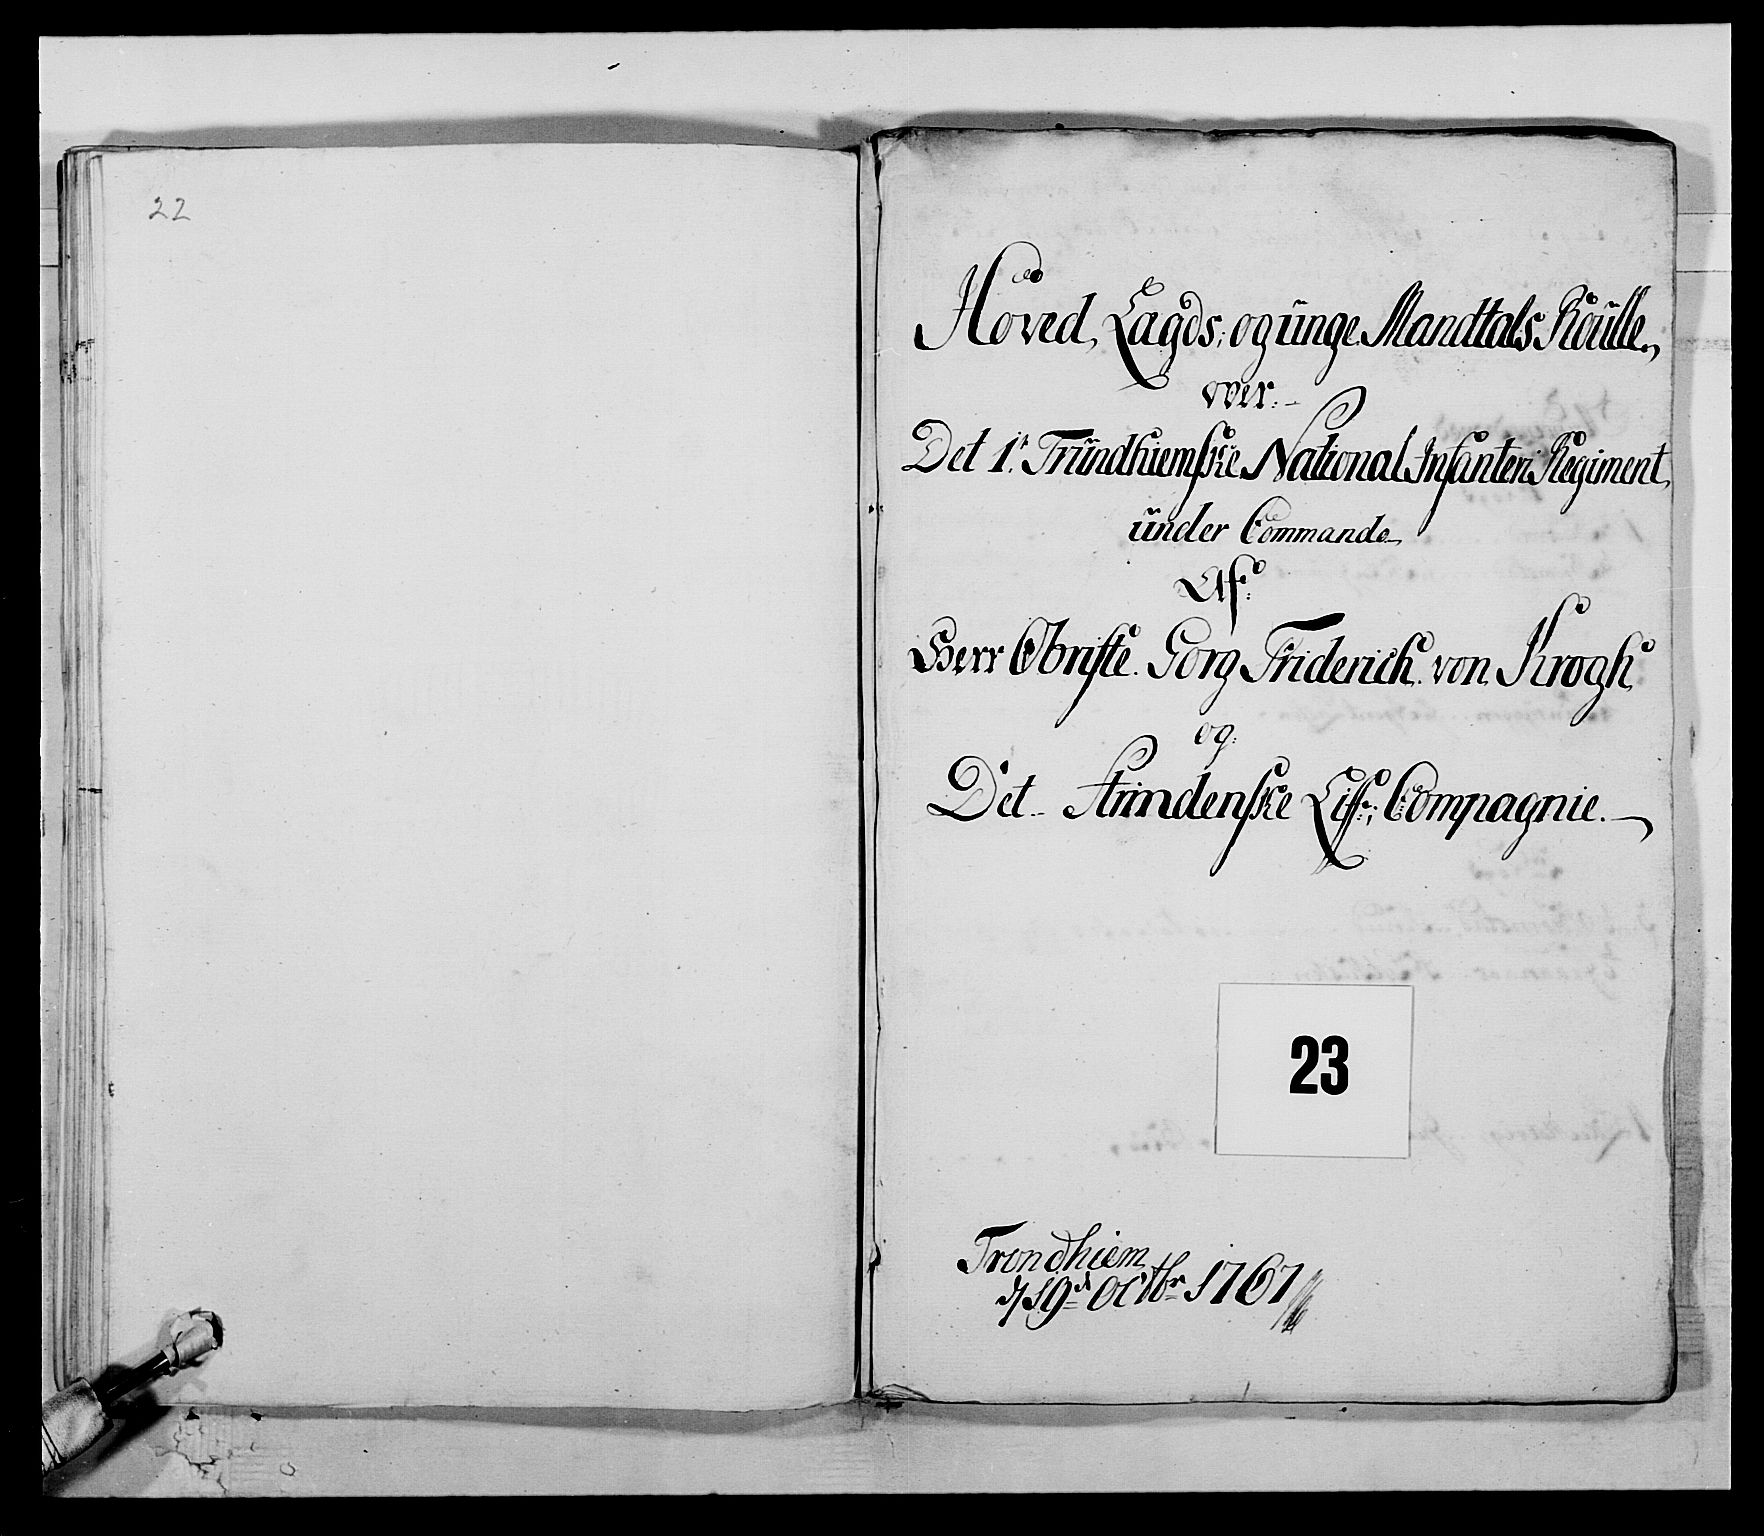 22
Hoved, Lægds; og unge Mandtals Roulle,
over:
Det 1t. Trundhiemske National Infanteri Regiment,
under Commando
Af:
Herr Obriste Gorg Friderich von Krogh
og:
Det Strindenske Liff: Compagnie.
23
Trondhiem
d 19d Octbr 1767